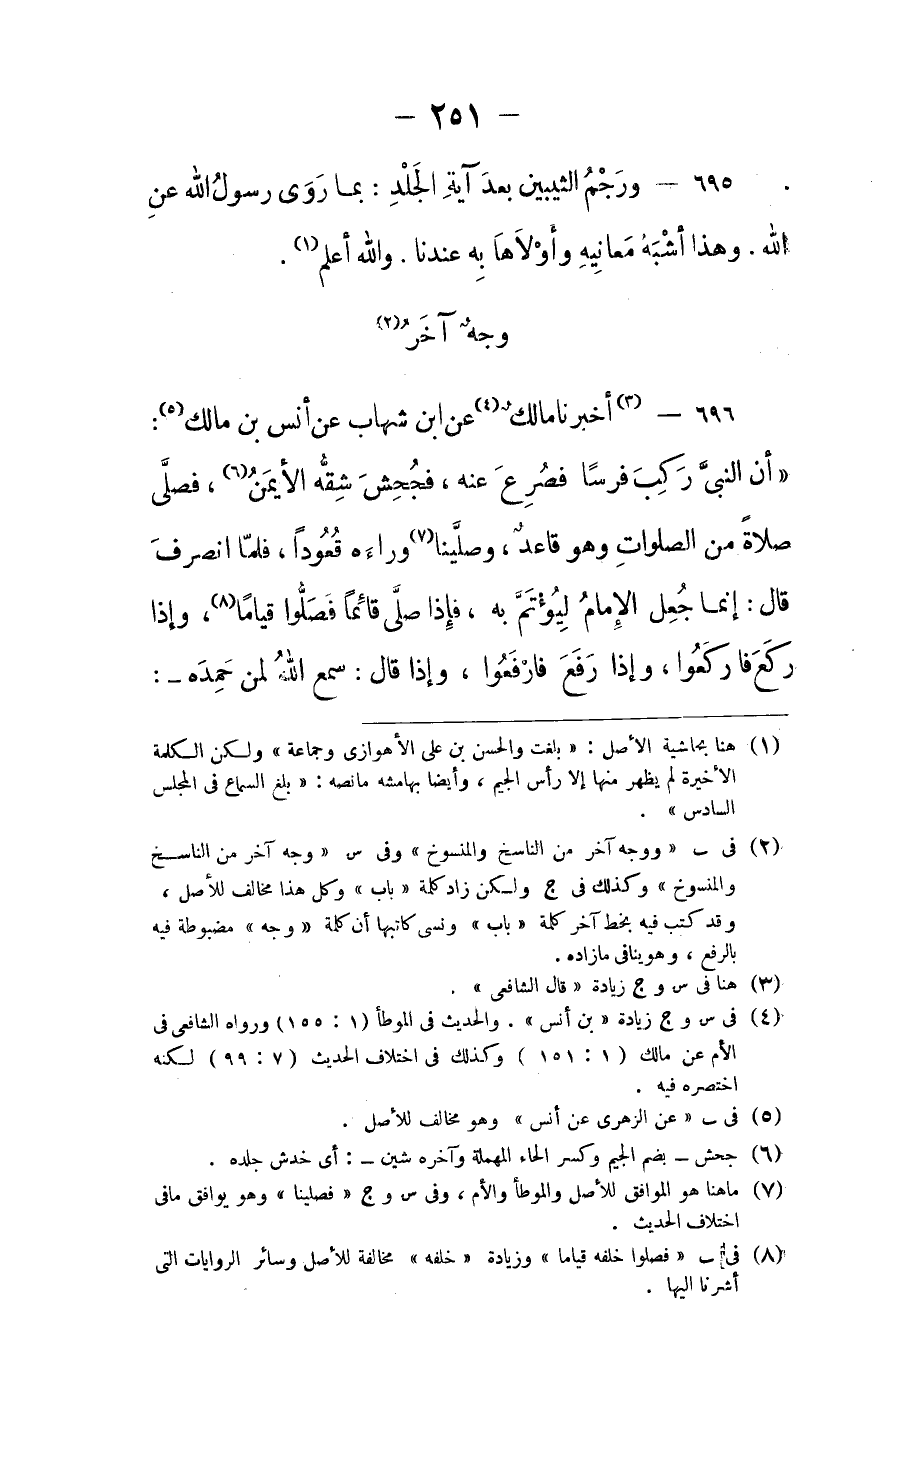 — ٢٥١ —
٦٩٥ — ورَجْمُ الثيبين بعدَ آيةِ الجَلْدِ : بما رَوَى رسولُ الله عنِ
الله . وهذا أشْبَهُ مَعانِيهِ وأَوْلاَهاَ بِه عندنا . والله أعلم(١) .
وجهٌ آخَرُ(٢)
٦٩٦ — (٣) أخبرنا مالكٌ(٤) عن ابن شهاب عن أنس بن مالك(٥) :
« أن النبيَّ رَكِبَ فرسًا فصُرِعَ عنه ، فجُحِشَ شِقُّه الأيمَنُ(٦) ، فصلَّى
صلاةً من الصلواتِ وهو قاعدٌ ، وصلَّينا(٧) وراءه قُعُوداً ، فلمّا انصرفَ
قال : إنما جُعِل الإمامُ لِيُؤْتَمَّ به ، فإذا صلَّى قائمًا فَصَلُّوا قيامًا(٨) ، وإذا
ركَعَ فاركَعُوا ، وإذا رَفَعَ فارْفَعُوا ، وإذا قال : سمع اللهُ لمن حَمِدَه – :
(١) هنا بحاشية الأصل : « بلغت والحسن بن على الأهوازى وجماعة » ولكن الكلمة
الأخيرة لم يظهر منها إلا رأس الجيم ، وأيضا بهامشه مانصه : « بلغ السماع فى المجلس
السادس » .
(٢) فى ب « ووجه آخر من الناسخ والمنسوخ » وفى س « وجه آخر من الناسخ
والمنسوخ » وكذلك فى ج ولكن زاد كلمة « باب » وكل هذا مخالف للأصل ،
وقد كتب فيه بخط آخر كلمة « باب » ونسى كاتبها أن كلمة « وجه » مضبوطة فيه
بالرفع ، وهو ينافى مازاده .
(٣) هنا فى س و ج زيادة « قال الشافعى » .
(٤) فى س و ج زيادة « بن أنس » . والحديث فى الموطأ (١ : ١٥٥) ورواه الشافعى فى
الأم عن مالك ( ١ : ١٥١ ) وكذلك فى اختلاف الحديث ( ٧ : ٩٩ ) لكنه
اختصره فيه .
(٥) فى ب « عن الزهرى عن أنس » وهو مخالف للأصل .
(٦) جحش – بضم الجيم وكسر الحاء المهملة وآخره شين – : أى خدش جلده .
(٧) ماهنا هو الموافق للأصل والموطأ والأم ، وفى س و ج « فصلينا » وهو يوافق مافى
اختلاف الحديث .
(٨) فى ب « فصلوا خلفه قياما » وزيادة « خلفه » مخالفة للأصل وسائر الروايات التى
أشرنا اليها .